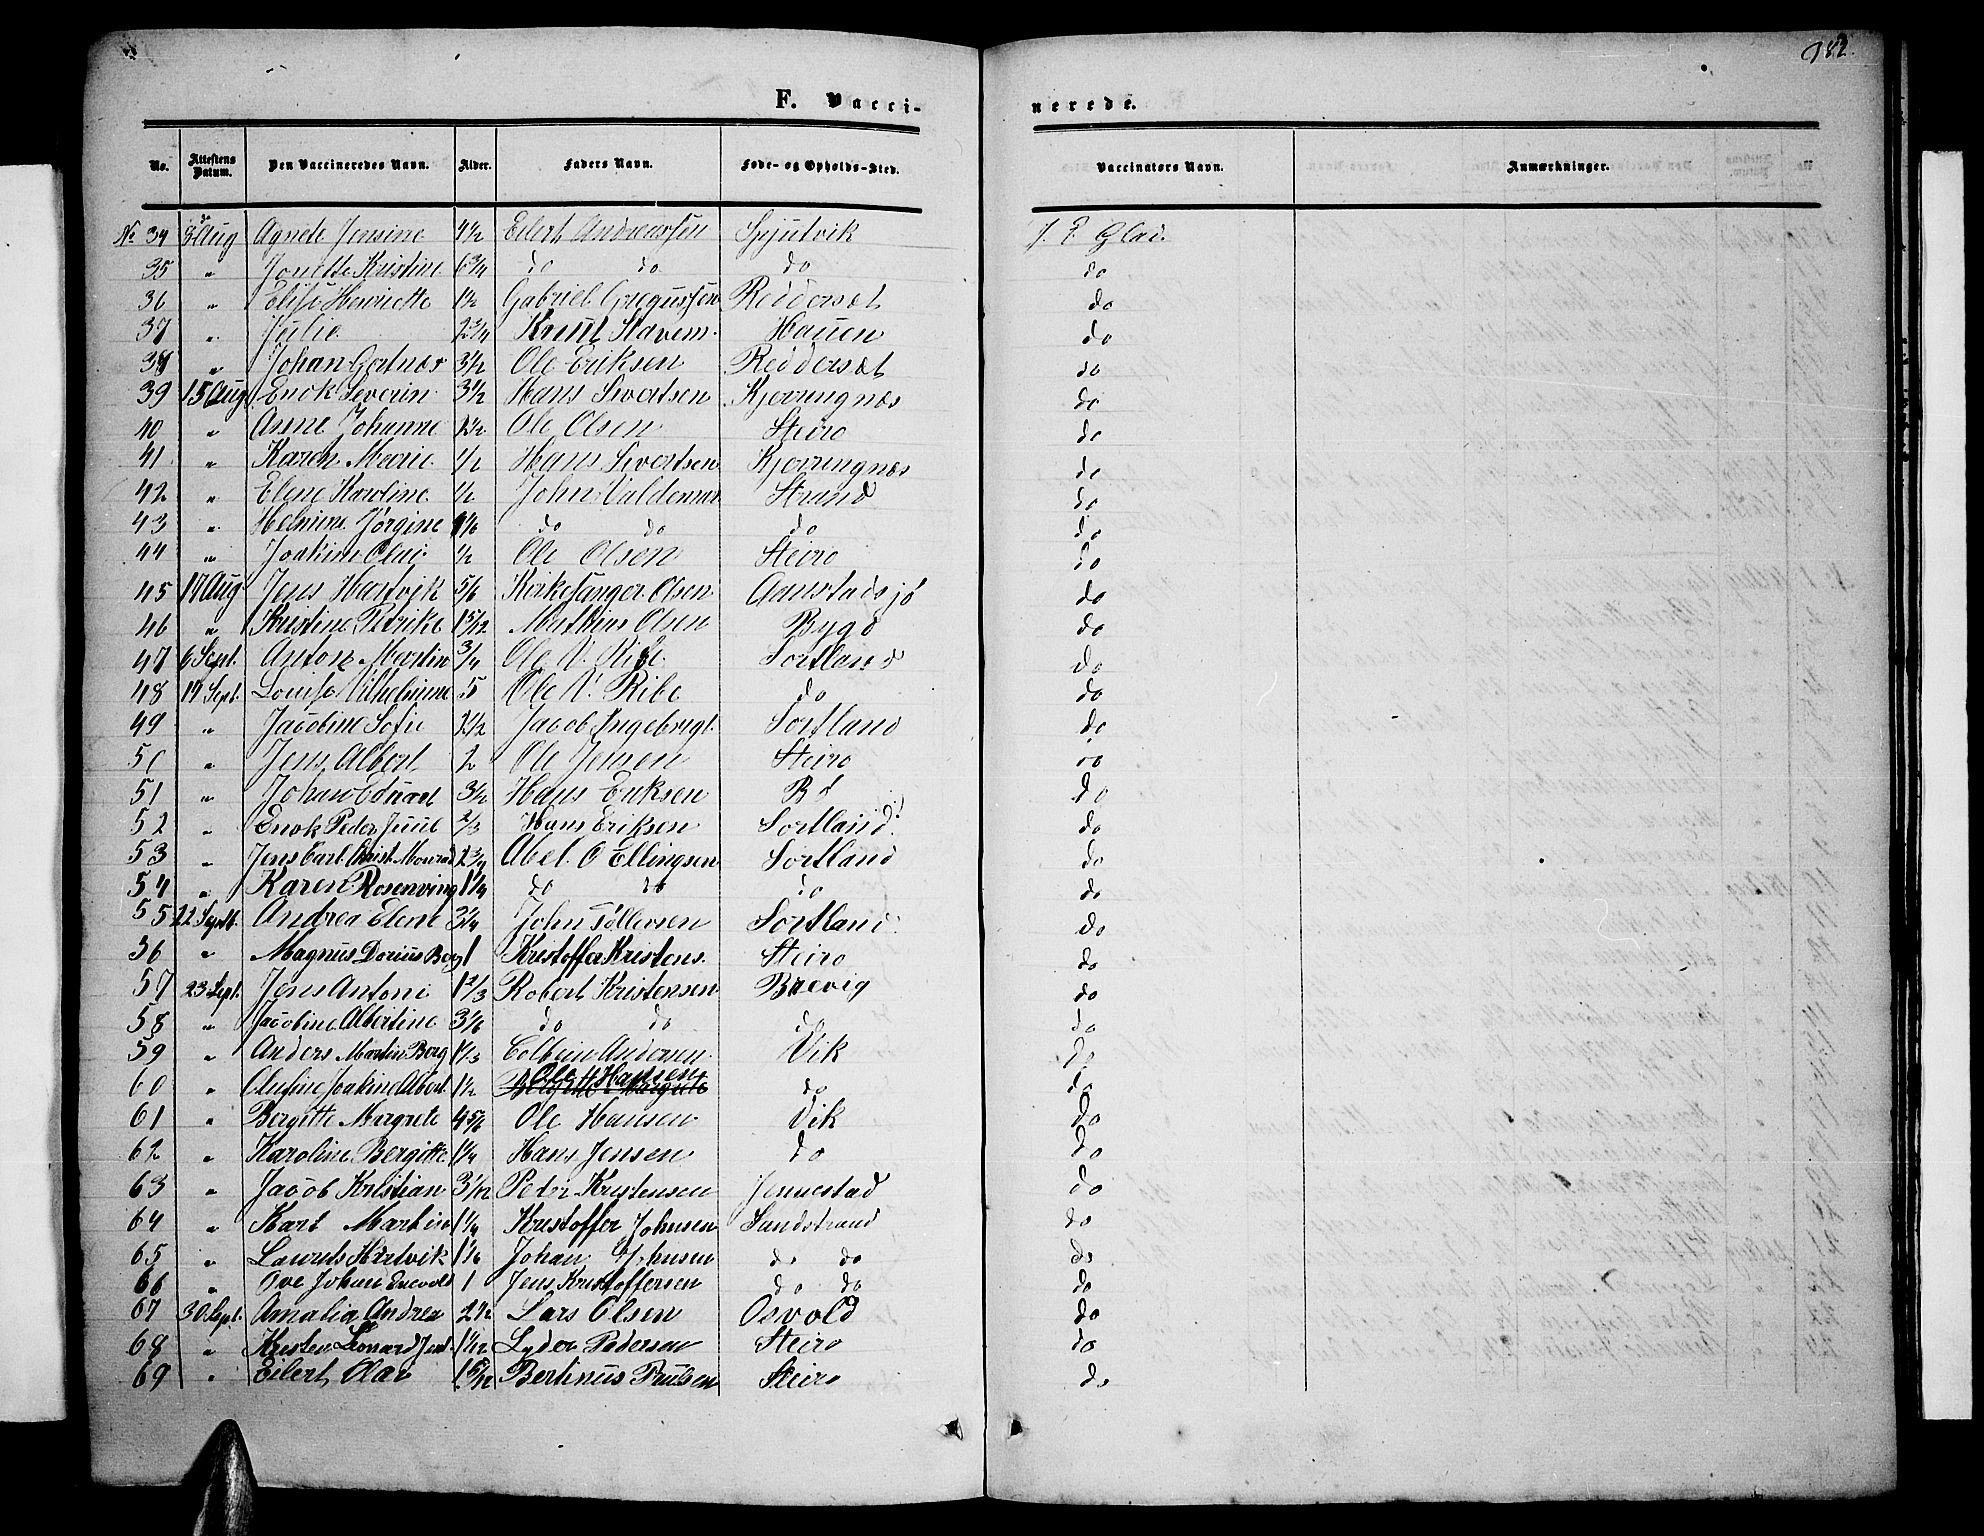 182.
F. Vacci-
nerede.
No. Attestens Datum. Den Vaccineredes Navn. Alder. Faders Navn. Føde- og Opholds-Sted. Vaccinators Navn. Anmærkninger.
No 34 3 Aug Agnete Jensine 1 1/2 Eilert Andreassen J. E. Glad.
35 " Jonette Kristine 6 3/4 do do do do
36 " Elise Henriette 1 1/2 Gabriel Gregussen Reddersæt do
37 " Julie 2 3/4 Knut Stavem. Hauen do
38 " Johan Gertner 3 1/2 Ole Eriksen Reddersæt do
39 15 Aug Enok Severin 3 1/2 Hans Sivertsen Kjerringnæs do
40 " Anne Johanne 2 1/2 Ole Olsen Steiro do
41 " Karen Marie 1/2 Hans Sivertsen Kjerringnæs do
42 " Elene Karoline 1/2 John Valdemar Strand do
43 " Helmine Jørgine 1/6 do do do do
44 " Joakim Olai 1/2 Ole Olsen Steiro do
45 17 Aug Jens Hartvik 5/6 Kirkesanger Olsen Aanstadsjö do
46 " Kristine Petrike 1 5/12 Mathias Olsen Bygd do
47 6 Sept. Anton Martin 3/4 Ole N. Ribe Sortland do
48 19 Sept. Louise Vilhelmine 5 Ole N. Ribe do do
49 " Jacobine Sofie 2 1/2 Jacob Ingebrigt. Sortland do
50 " Jens Albert 2 Ole Jensen Steiro do
51 " Johan Eduard 3 1/2 Hans Eriksen Bø do
52 " Enok Peder Juul 2/3 Hans Eriksen Sortland do
53 " Jens Carl Christ. Monrad 2 3/4 Abel O Ellingsen Sortland do
54 " Karen Rosenving 1 1/4 do do do do
55 22 Sept. Andrea Elene 3/4 John Tøllefsen Sortland do
56 " Magnus Dorius Berg 1 Kristoffer Kristens. Steiro do
57 23 Sept. Jens Antoni 1 2/3 Robert Kristensen Brevig do
58 " Jacobine Albertine 3 1/6 do do do do
59 " Anders Martin Berg 1 1/3 Colbein Andersen Vik do
60 " Joakine Albert. 1 1/2 Ole Hansen do do
61 " Bergitte Margrete 4 5/6 Ole Hansen Vik do
62 " Karoline Bergitte 1 1/4 Hans Jensen do do
63 " Jacob Kristian 3 1/12 Peder Kristensen Jennestad do
64 " Karl Martin 1 1/4 Kristoffer Johnsen Sandstrand do
65 " Lauruts Hartvik 1 1/6 Johan Johnsen do do do
66 " Ove Johan Enevold 1 Jens Kristoffersen do do do
67 30 Sept. Amalia Andrea 2 1/2 Lars Olsen Osvold do
68 " Kristen Leonard Jent. 1 1/12 Lyder Pedersen Steiro do
69 " Eilert Olav 1 5/12 Bertinus Paulsen Steiro do